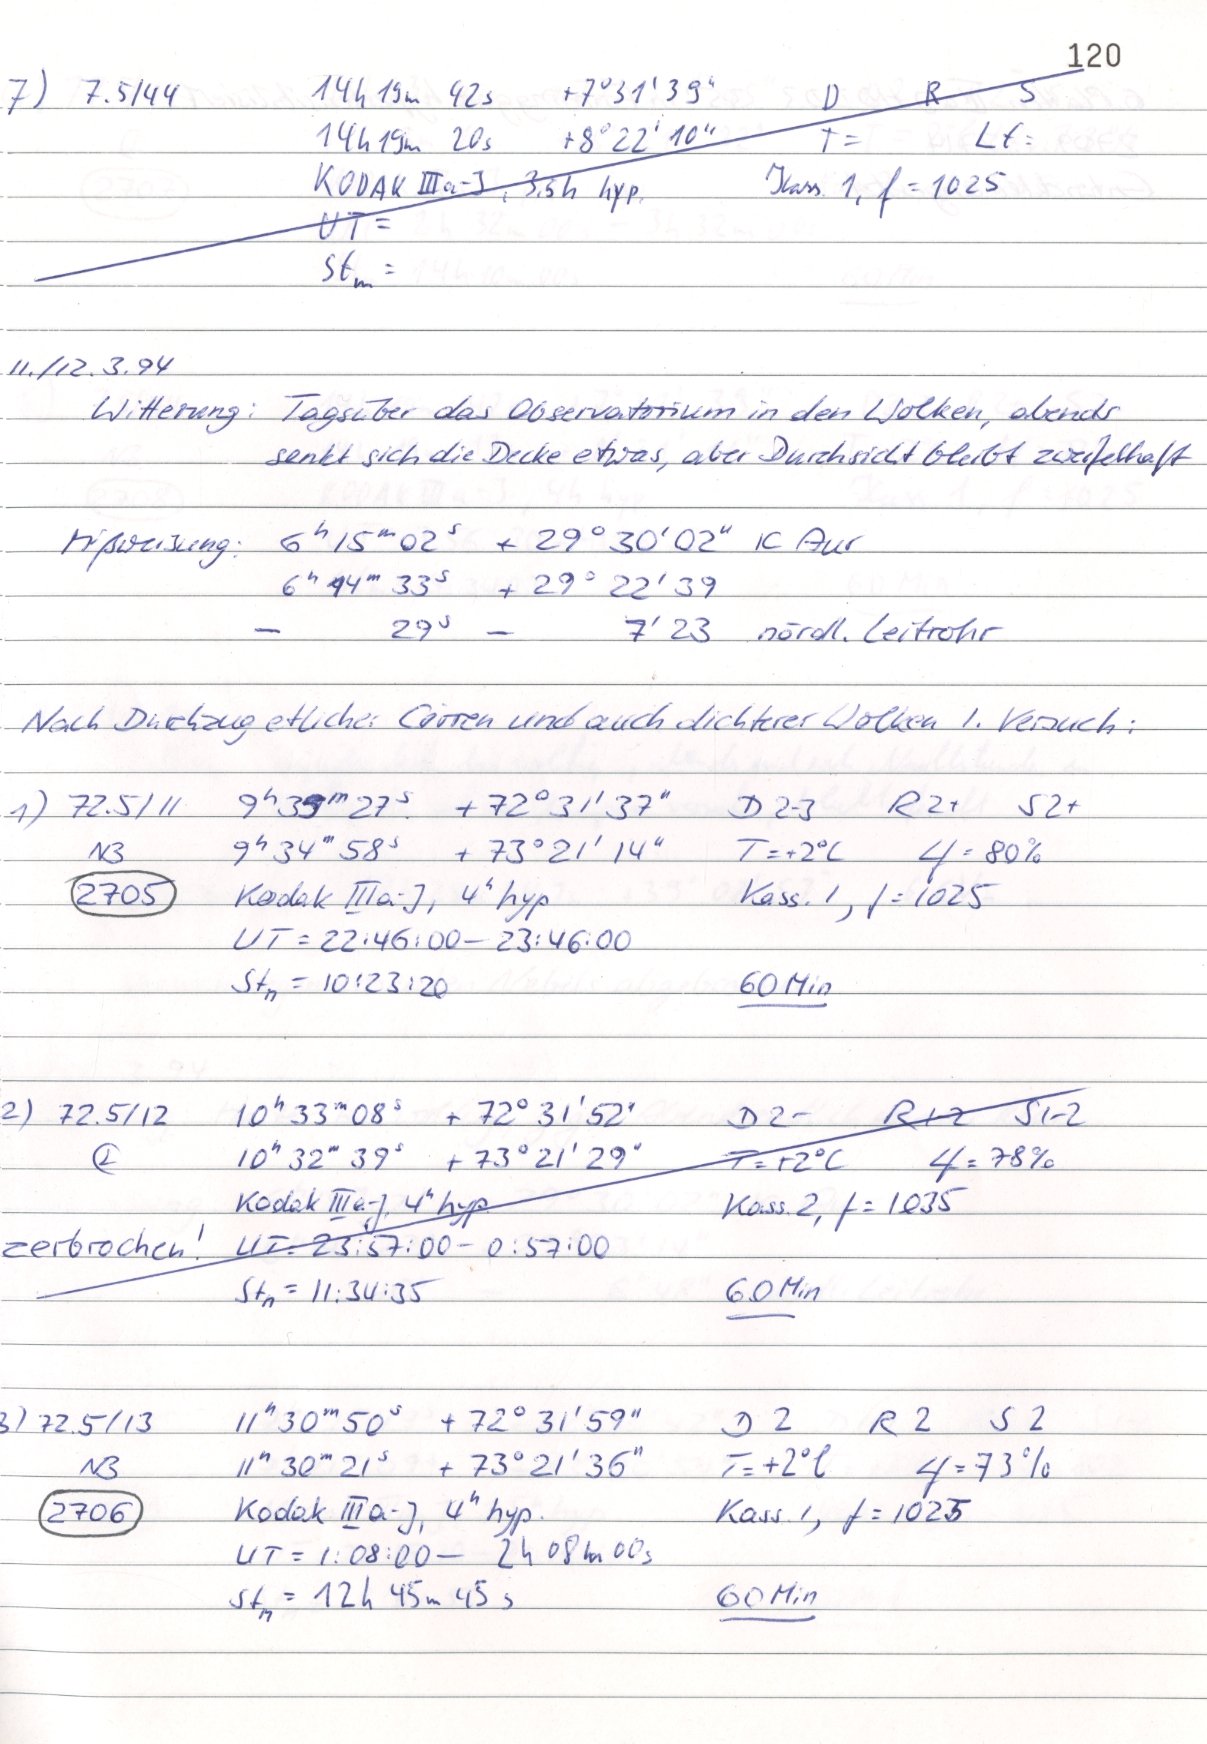 120
7) 7.5/44 14h 19m 42s +7°31'39" D R S
14h 19m 20s +8°22'10" T= Lf:
KODAK IIIa-J, 3.5h hyp. Kass. 1, f = 1025
UT =
Stm =
11./12.3.94
Witterung: Tagsüber das Observatorium in den Wolken, abends
senkt sich die Decke etwas, aber Durchsicht bleibt zweifelhaft
Mißweisung: 6h 15m 02s + 29°30'02" K Aur
6h 14m 33s + 29°22'39
- 29s - 7'23 nördl. Leitrohr
Nach Durchzug etlicher Cirren und auch dichterer Wolken 1. Versuch:
1) 72.5/11 9h 35m 27s +72°31'37" D 2-3 R 2+ S 2+
N3 9h 34m 58s +73°21'14" T=+2°C Lf = 80%
2705 Kodak IIIa-J, 4h hyp Kass. 1, f = 1025
UT = 22:46:00 – 23:46:00
Stn = 10:23:20 60 Min
2) 72.5/12 10h 33m 08s +72°31'52" D 2- R 1-2 S 1-2
10h 32m 39s +73°21'29" T=+2°C Lf = 78%
Kodak IIIa-J, 4h hyp Kass. 2, f = 1035
zerbrochen! UT = 23:57:00 – 0:57:00
Stn = 11:34:35 60 Min
3) 72.5/13 11h 30m 50s +72°31'59" D 2 R 2 S 2
N3 11h 30m 21s +73°21'36" T=+2°C Lf = 73%
2706 Kodak IIIa-J, 4h hyp. Kass. 1, f = 1025
UT = 1:08:00 – 2h 08m 00s
Stn = 12h 45m 45s 60 Min